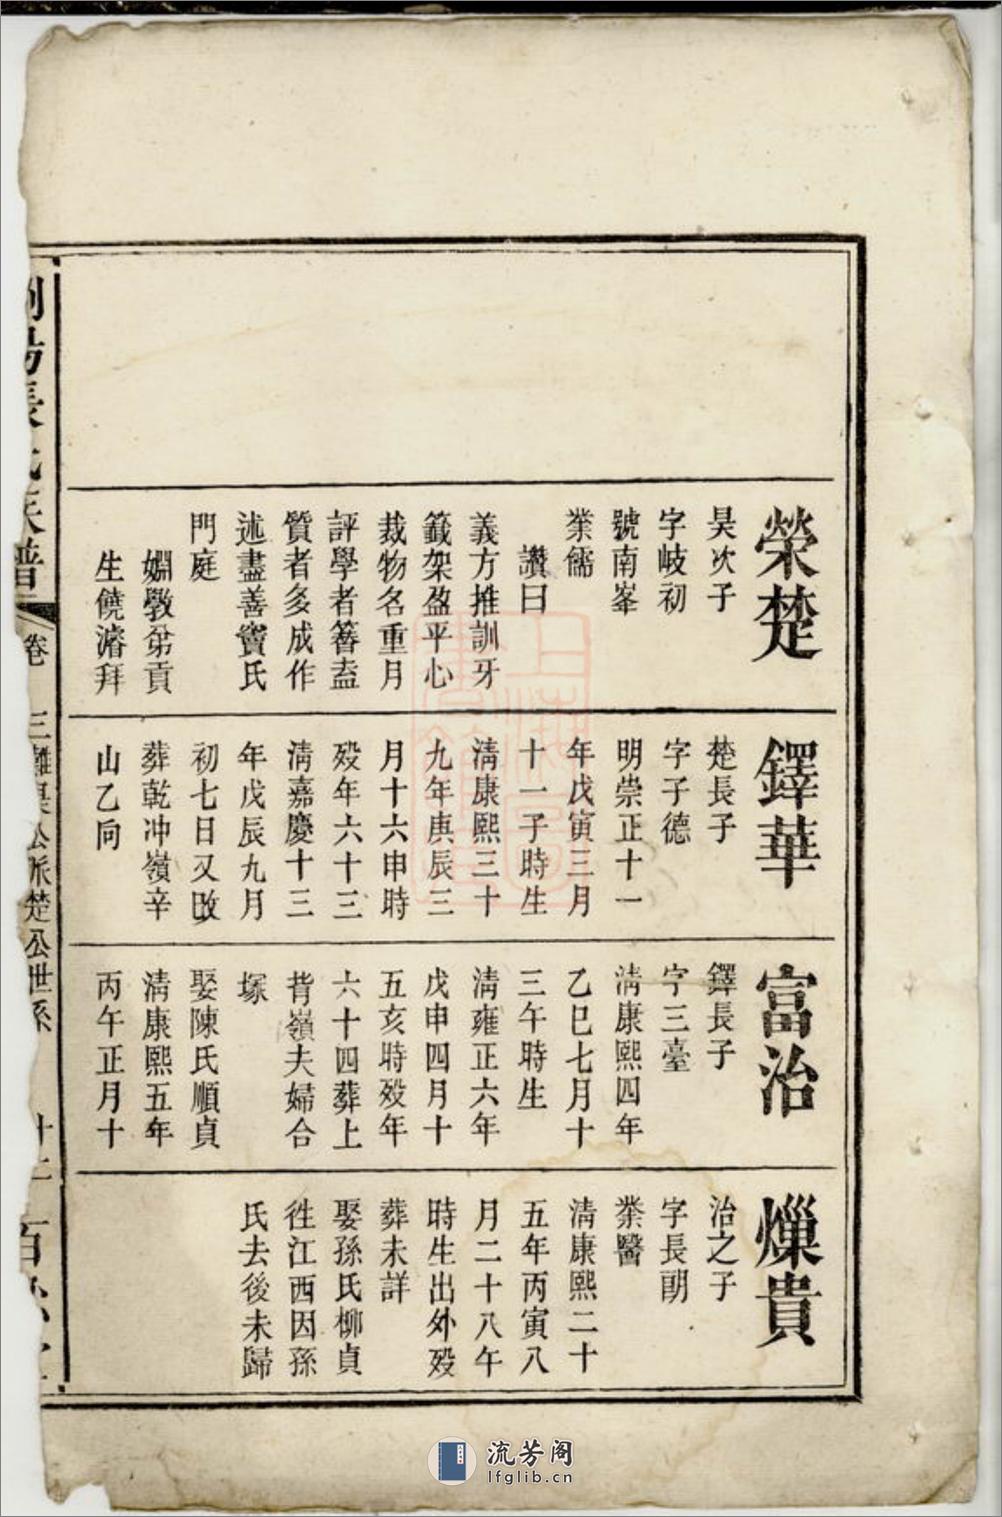 榮楚
昊次子
字岐初
號南峯
業儒
讚曰
義方推訓牙
籤架盈平心
裁物名重月
評學者簪盍
質者多成作
述盡善竇氏
門庭
婣敎弟貢
生饒濬拜
鐸華
楚長子
字子德
明崇正十一
年戊寅三月
十一子時生
淸康熙三十
九年庚辰三
月十六申時
歿年六十三
淸嘉慶十三
年戊辰九月
初七日又改
葬乾冲嶺辛
山乙向
富治
鐸長子
字三臺
淸康熙四年
乙巳七月十
三午時生
淸雍正六年
戊申四月十
五亥時歿年
六十四葬上
背嶺夫婦合
塚
娶陳氏順貞
淸康熙五年
丙午正月十
爍貴
治之子
字長朗
業醫
淸康熙二十
五年丙寅八
月二十八午
時生出外歿
葬未詳
娶孫氏柳貞
徃江西因孫
氏去後未歸
瀏陽張氏族譜
卷
三離昊公派楚公世系
十二
百忍堂
上海圖書館藏
流芳阁
lfglib.cn